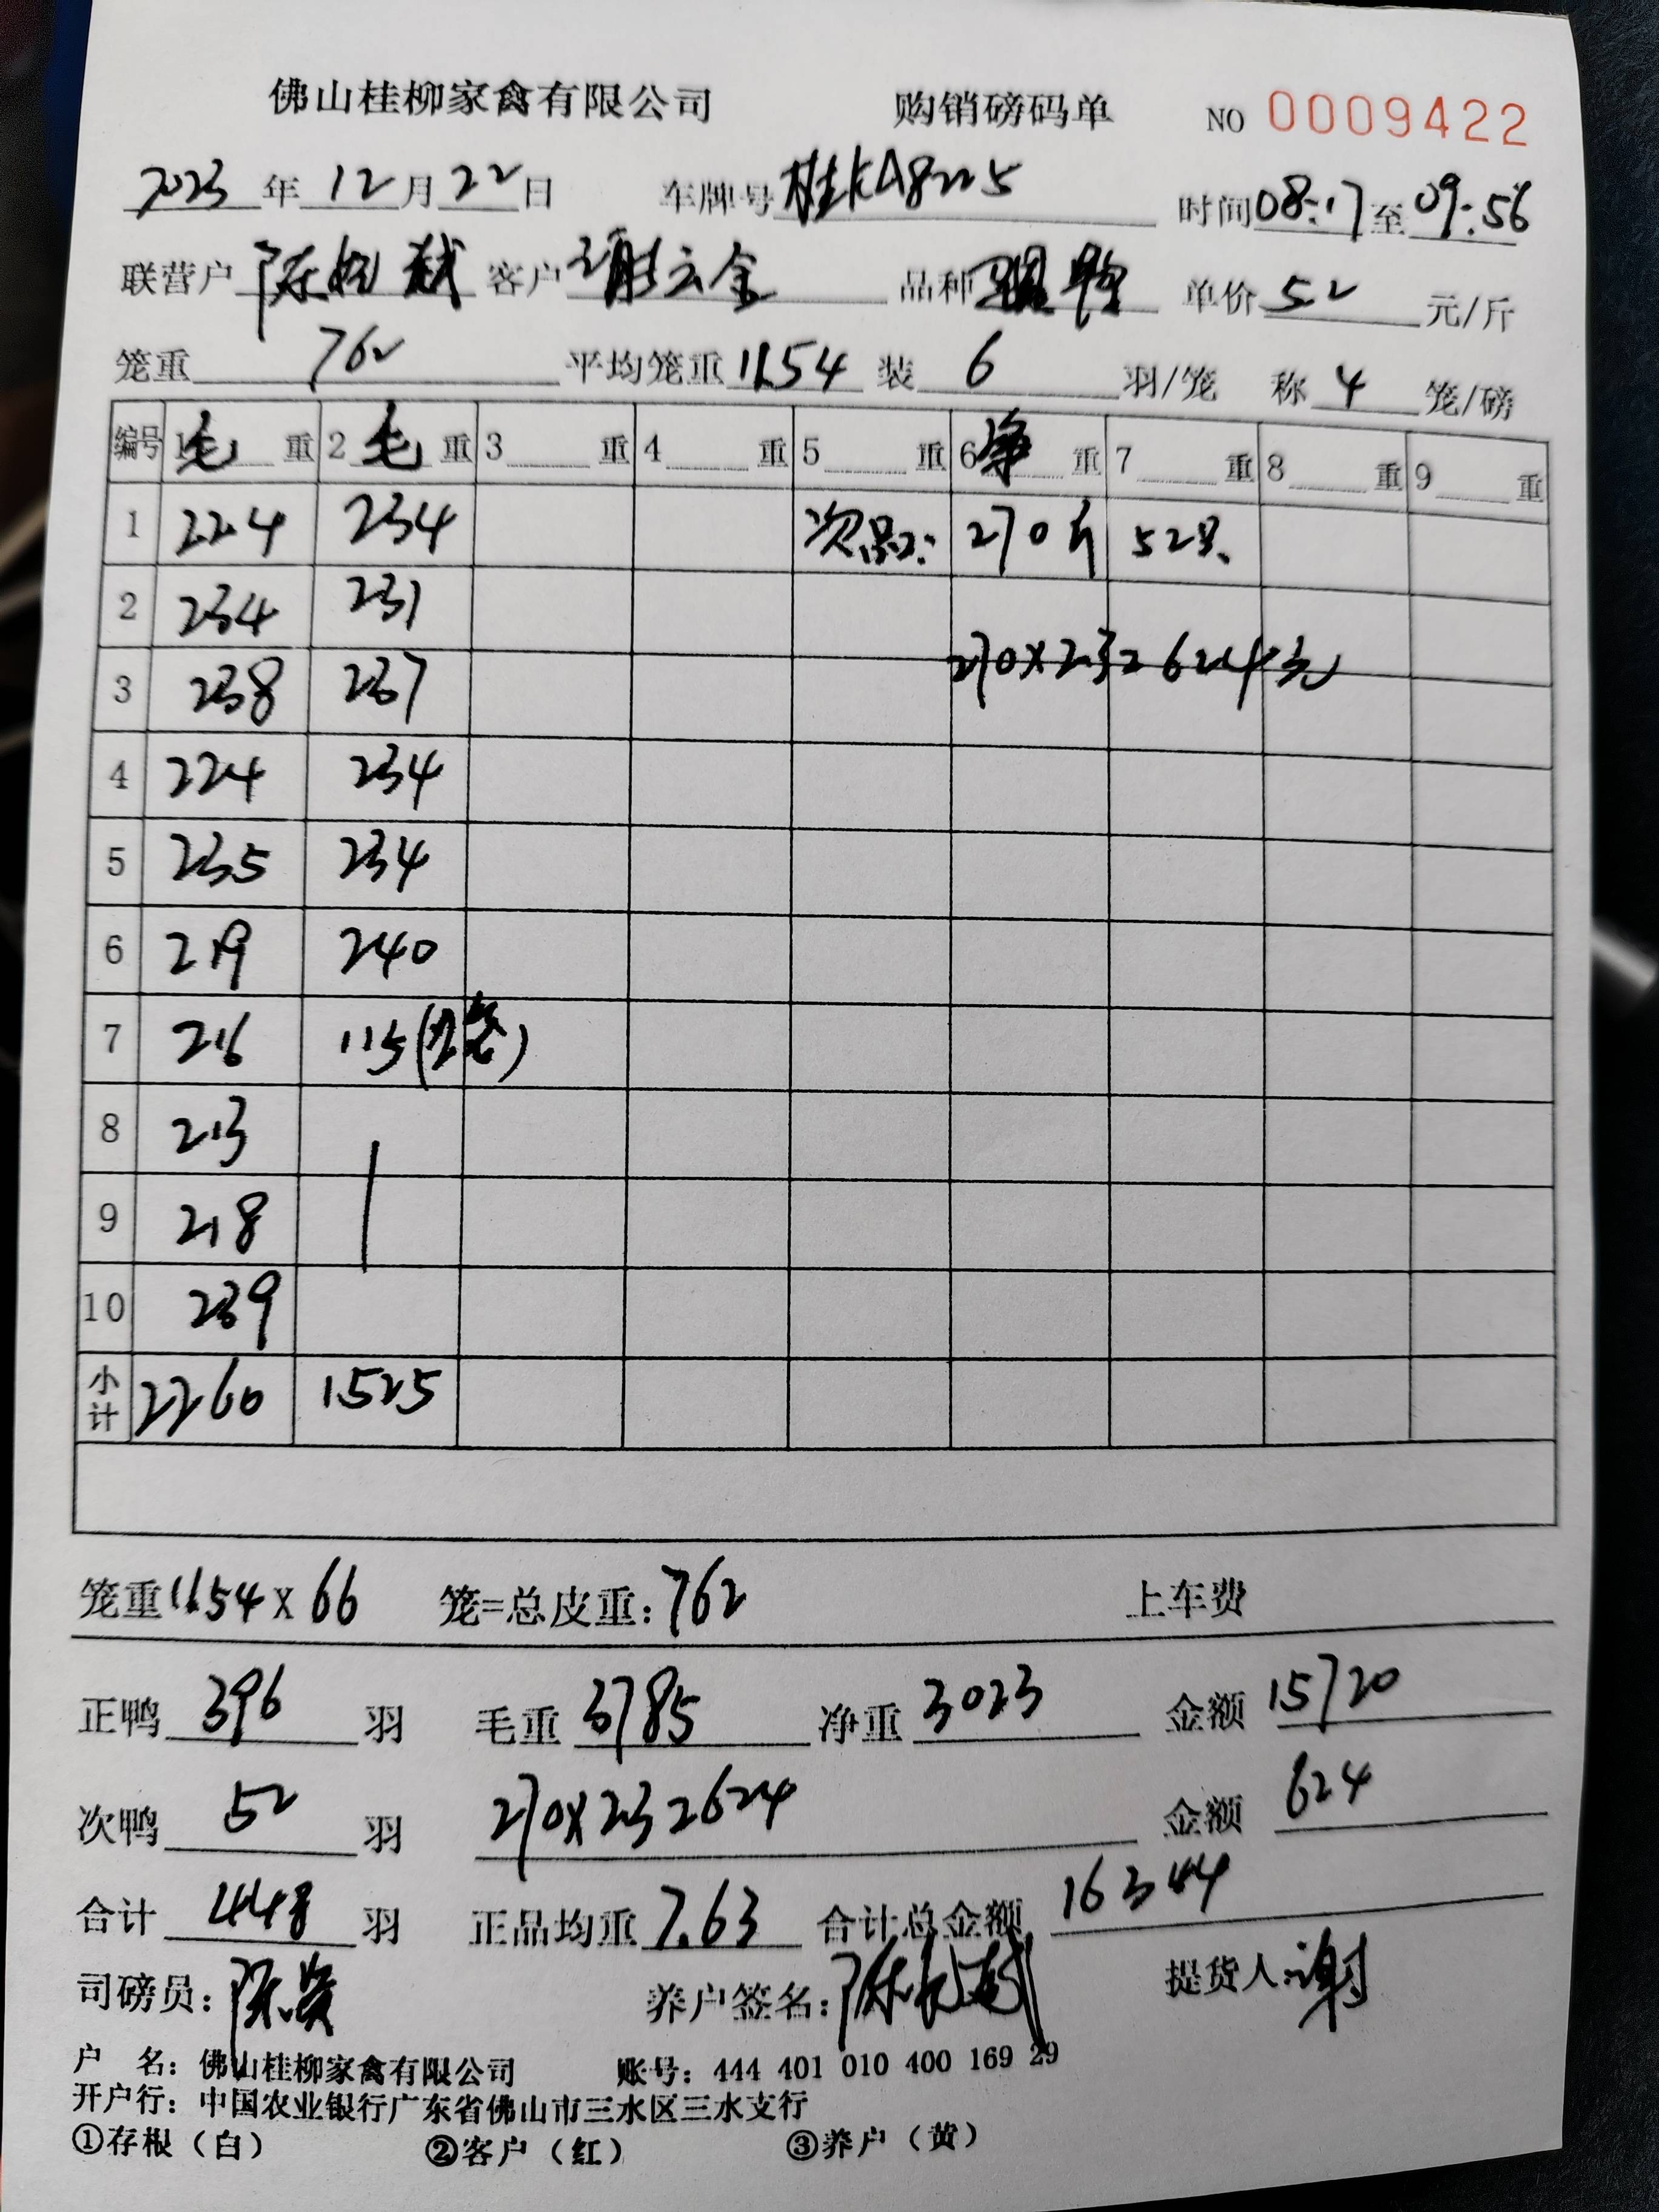 佛山桂柳家禽有限公司 购销磅码单 NO 0009422
2023年12月22日 车牌号桂KA8225 时间08:17至09:56
联营户陈 客户谢云金 品种 单价5.2元/斤
笼重762 平均笼重11.54 装6羽/笼 称4笼/磅
编号 1毛重 2毛重 3重 4重 5重 6净重 7重 8重 9重
1 224 234 次品: 270斤 52只
2 234 231
270×2.3=624元
3 238 237
4 224 234
5 235 234
6 219 240
7 216 115(2笼)
8 213
9 218
10 239
小计 2260 1525
笼重11.54X66 笼=总皮重:762 上车费
正鸭396羽 毛重3785 净重3023 金额15720
次鸭52羽 270×2.3=624 金额624
合计448羽 正品均重7.63 合计总金额16344
司磅员:陈 养户签名:陈 提货人:谢
户 名: 佛山桂柳家禽有限公司 账号: 444 401 010 400 169 29
开户行: 中国农业银行广东省佛山市三水区三水支行
①存根（白） ②客户（红） ③养户（黄）